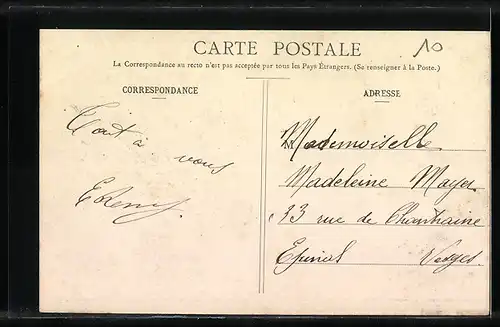 CARTE POSTALE
10
La Correspondance au recto n'est pas acceptée par tous les Pays Étrangers. (Se renseigner à la Poste.)
CORRESPONDANCE
ADRESSE
Tout à vous
Mademoiselle
Madeleine Mayer
33 rue de Chantraine
Epinal Vosges